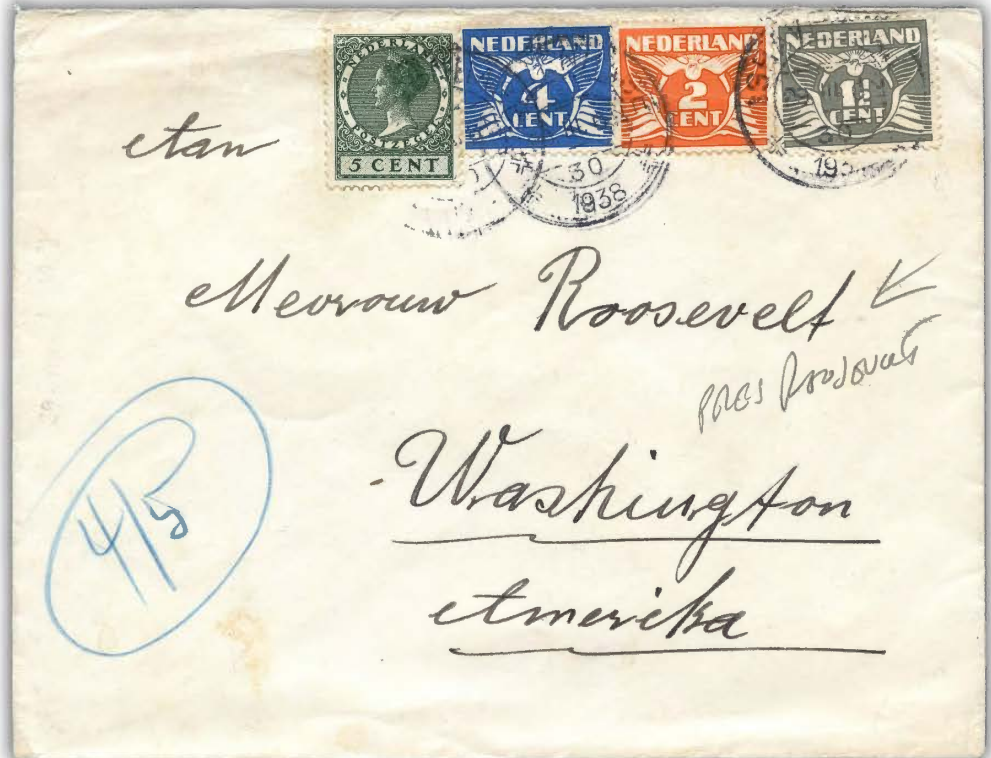 NEDERLAND
POSTZEGEL
5 CENT
NEDERLAND
4
CENT
NEDERLAND
2
CENT
NEDERLAND
1½
CENT
30
1938
30
193
Aan
Mevrouw Roosevelt
PRES ROOSEVELT
Washington
Amerika
4/5